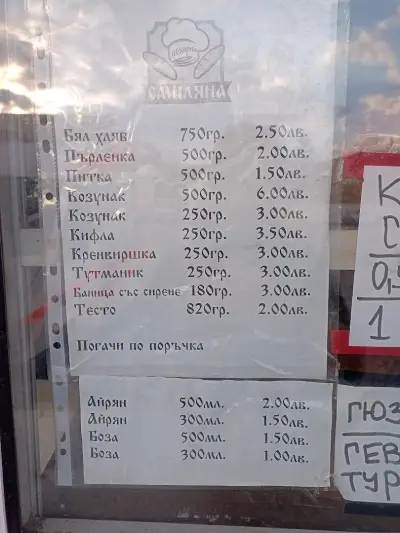 СМИЛЯНА
Бял хляб 750гр. 2.50лв.
Пърленка 500гр. 2.00лв.
Питка 500гр. 1.50лв.
Козунак 500гр. 6.00лв.
Козунак 250гр. 3.00лв.
Кифла 250гр. 3.50лв.
Кренвиршка 250гр. 3.00лв.
Тутманик 250гр. 3.00лв.
Баница със сирене 180гр. 3.00лв.
Тесто 820гр. 2.00лв.
Погачи по поръчка
Айрян 500мл. 2.00лв.
Айрян 300мл. 1.50лв.
Боза 500мл. 1.50лв.
Боза 300мл. 1.00лв.
К
0,
1
ГЮЗ
ГЕВ
ТУР